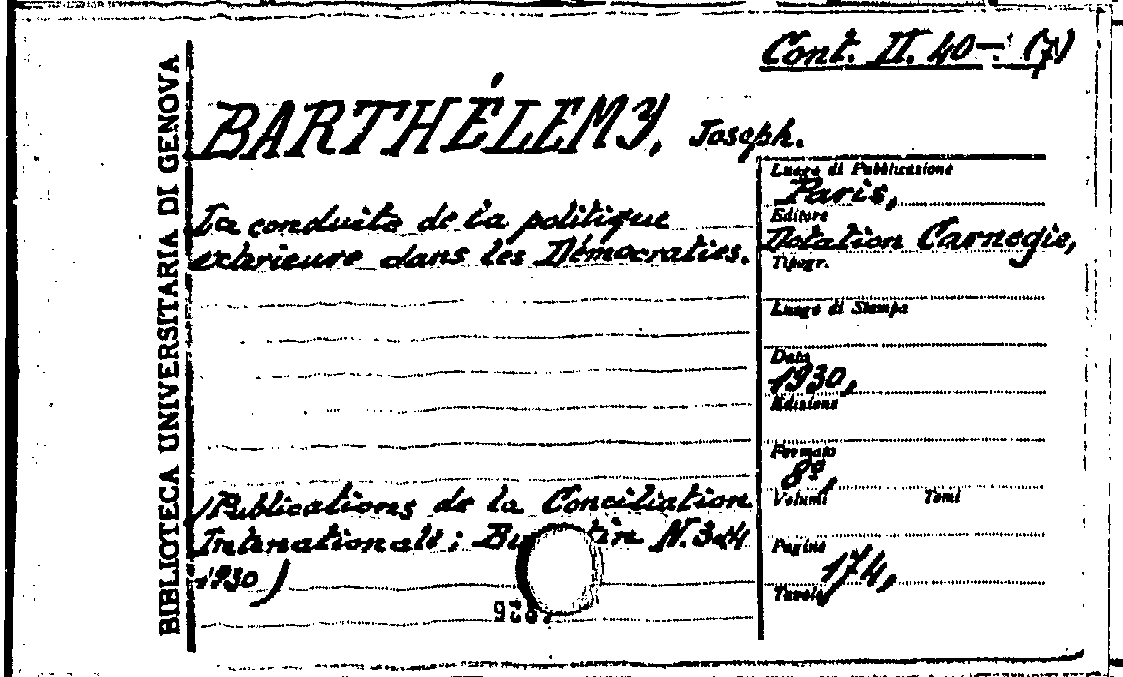 Cont. II. 40 — (7)
BIBLIOTECA UNIVERSITARIA DI GENOVA
BARTHÉLEMY, Joseph.
La conduite de la politique
extérieure dans les Démocraties.
(Publications de la Conciliation
Internationale: N. 3 4
1930)
Luogo di Pubblicazione
Paris,
Editore
Dotation Carnegie,
Tipogr.
Luogo di Stampa
Data
1930,
Edizione
Formato
8º,
Volumi Tomi
Pagine
174,
Tavole